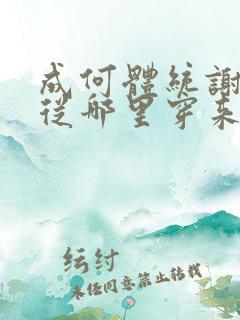 成何體統謝
從哪里穿來
纭纣
未经同意禁止转载